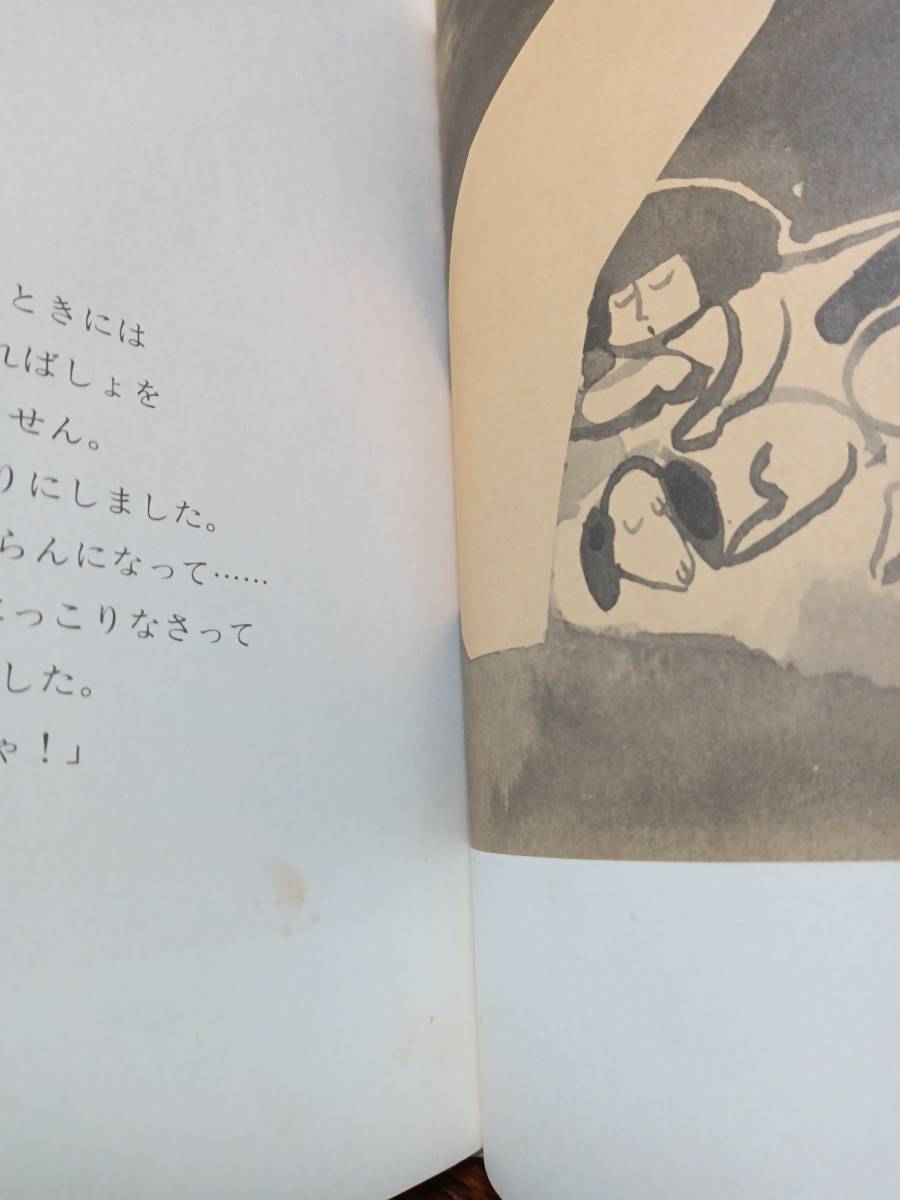 ときには
ればしょを
せん。
りにしました。
らんになって……
こっこりなさって
した。
ゃ！」